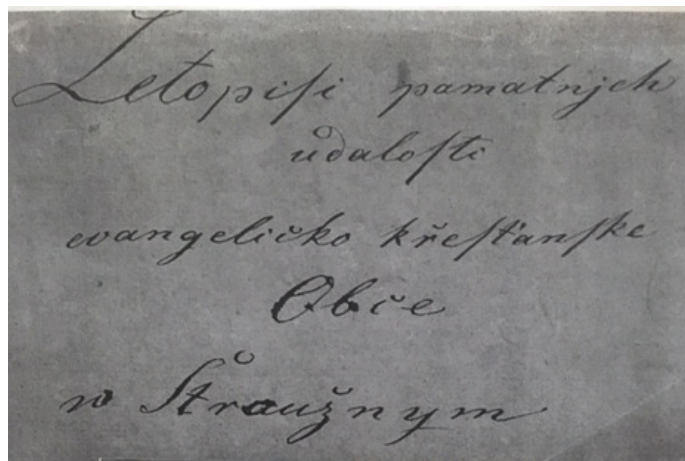 Letopiſi pamatnjch
udaloſti
ewangeličko křeſťanſke
Obče
w Štraužnym